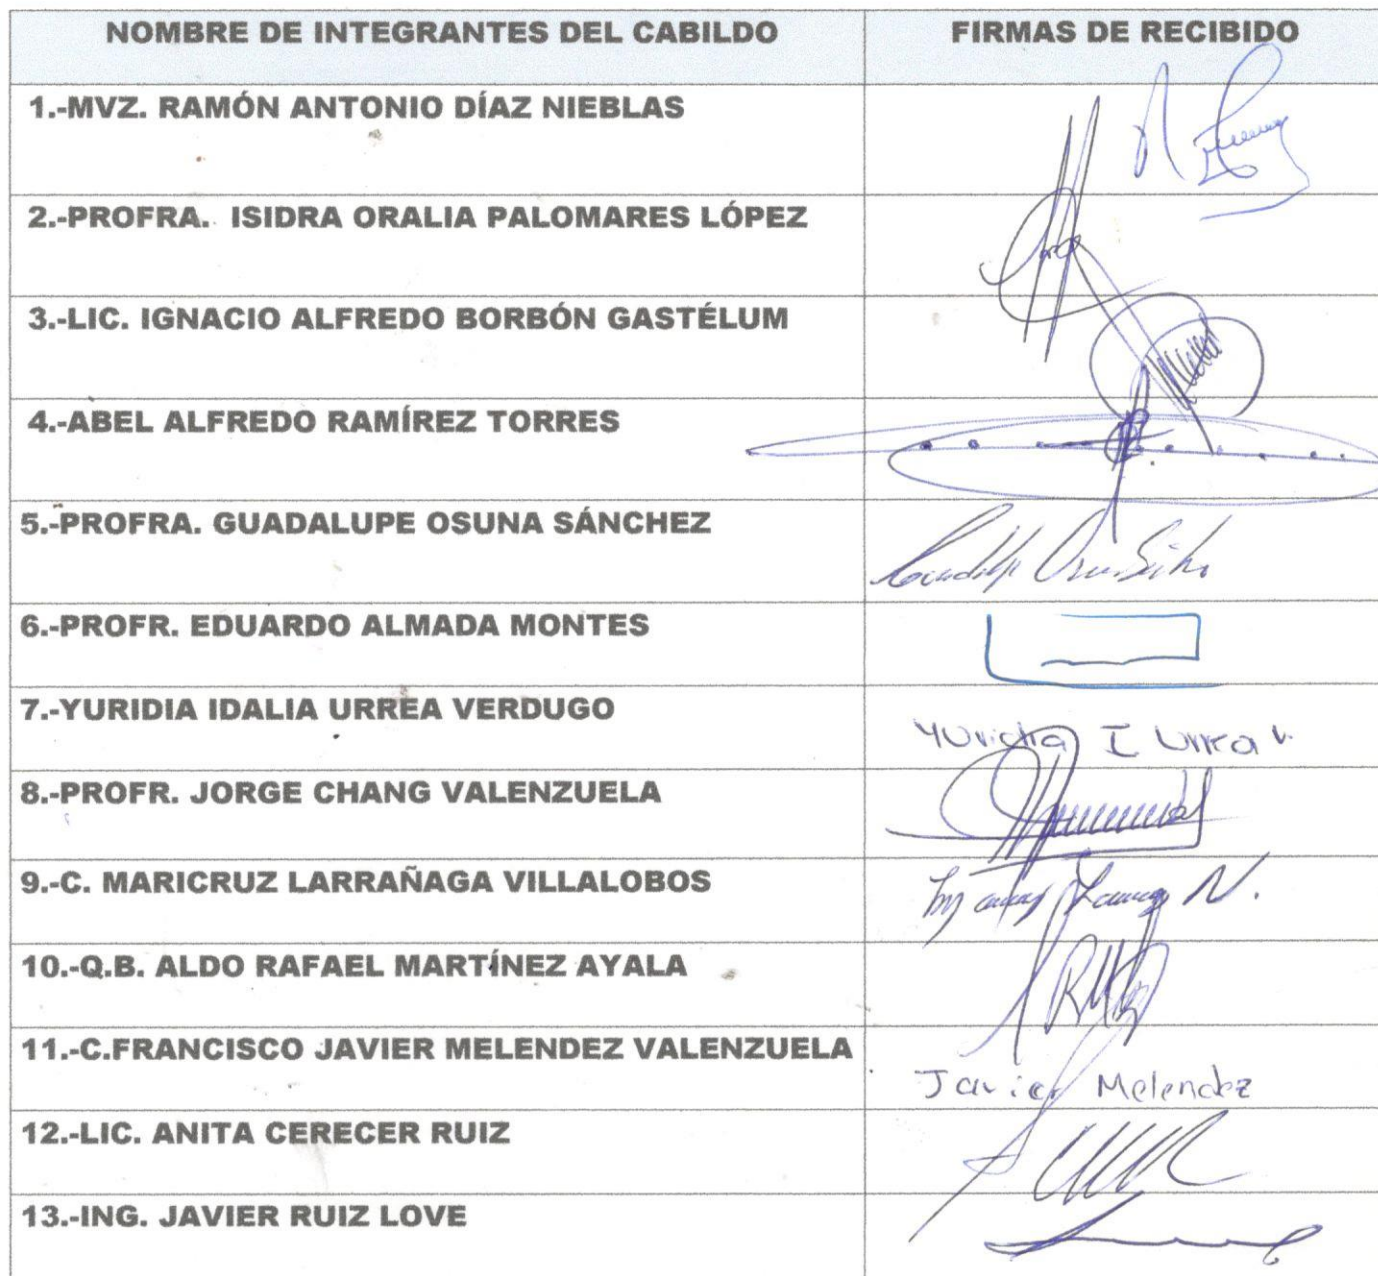 NOMBRE DE INTEGRANTES DEL CABILDO FIRMAS DE RECIBIDO
1.-MVZ. RAMÓN ANTONIO DÍAZ NIEBLAS
2.-PROFRA. ISIDRA ORALIA PALOMARES LÓPEZ
3.-LIC. IGNACIO ALFREDO BORBÓN GASTÉLUM
4.-ABEL ALFREDO RAMÍREZ TORRES
5.-PROFRA. GUADALUPE OSUNA SÁNCHEZ
6.-PROFR. EDUARDO ALMADA MONTES
7.-YURIDIA IDALIA URREA VERDUGO
Yuridia I Urrea V.
8.-PROFR. JORGE CHANG VALENZUELA
9.-C. MARICRUZ LARRAÑAGA VILLALOBOS
10.-Q.B. ALDO RAFAEL MARTÍNEZ AYALA
11.-C.FRANCISCO JAVIER MELENDEZ VALENZUELA
Javier Melendez
12.-LIC. ANITA CERECER RUIZ
13.-ING. JAVIER RUIZ LOVE